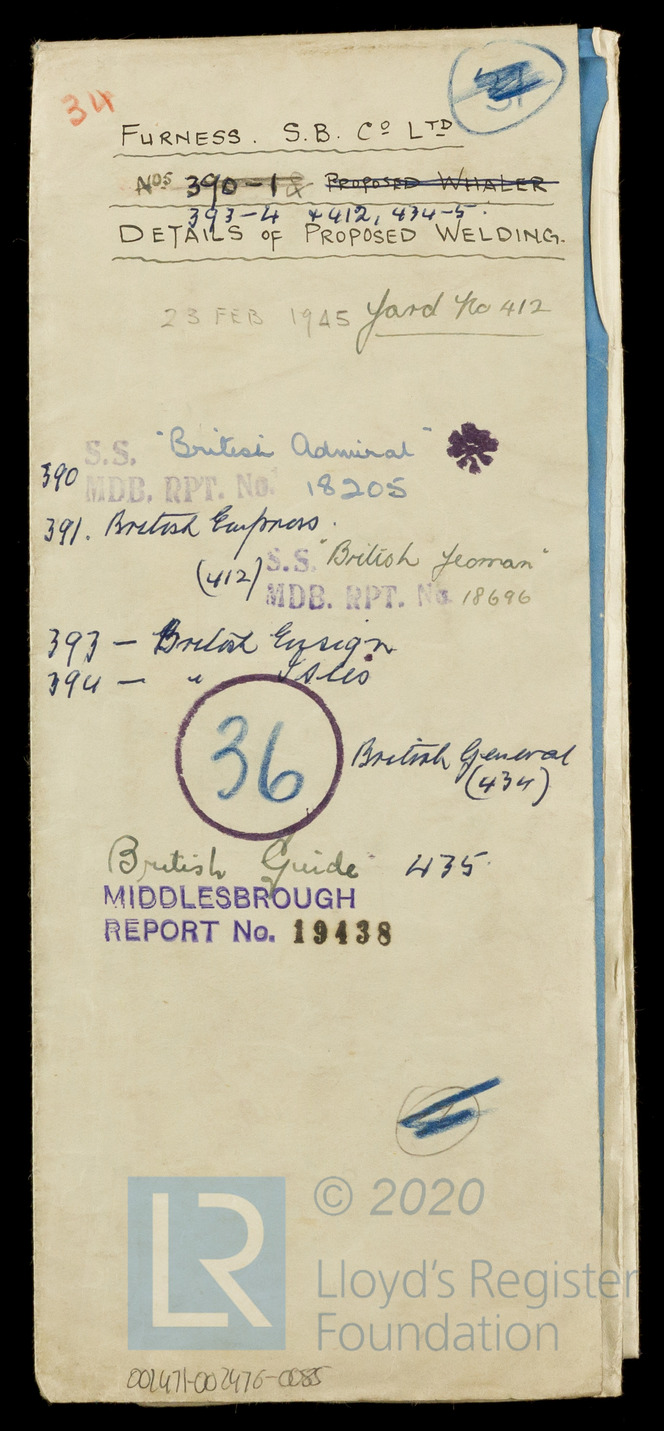 34
FURNESS. S.B. Cº LTD
Nos 390-1 & PROPOSED WHALER
393-4 +412, 434-5.
DETAILS OF PROPOSED WELDING.
23 FEB 1945 Yard No 412
S.S. "British Admiral"
390
MDB. RPT. No. 18205
391. British Empress.
(412) S.S. "British Yeoman"
MDB. RPT. No. 18696
393 – British Ensign
394 – " Isles
36
British General
(434)
British Guide 435.
MIDDLESBROUGH
REPORT No. 19438
LR
© 2020
Lloyd's Register
Foundation
002471-002476-0085